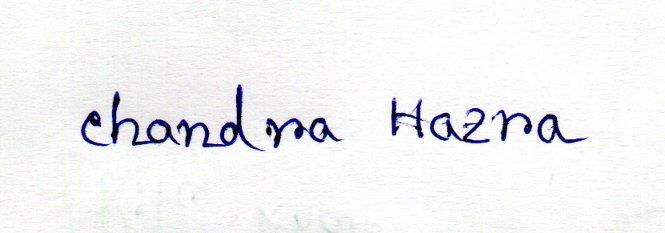 Chandra Hazra